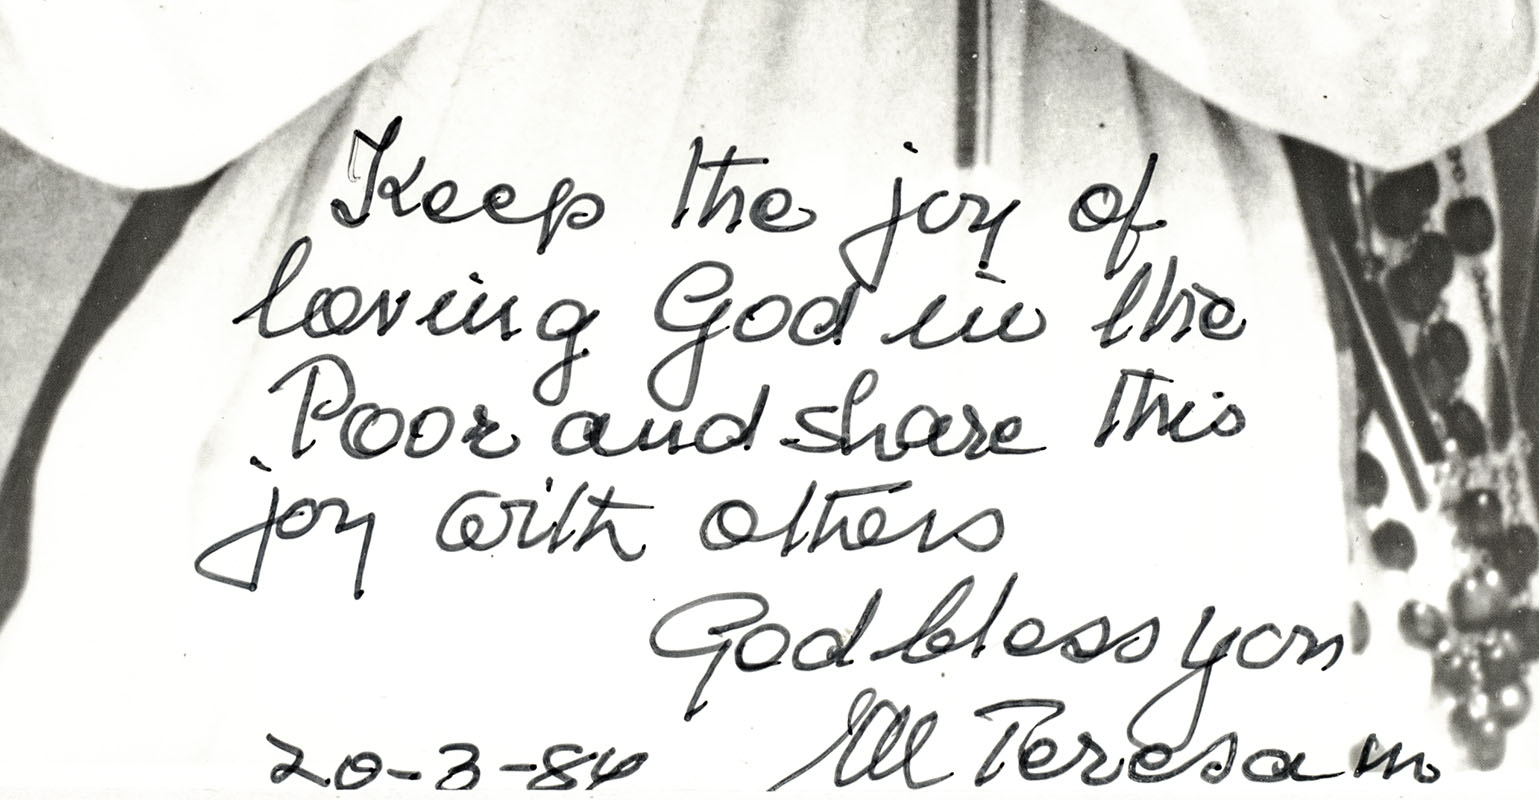 Keep the joy of
loving God in the
Poor and share this
joy with others
God bless you
M Teresa m.c
20-3-84